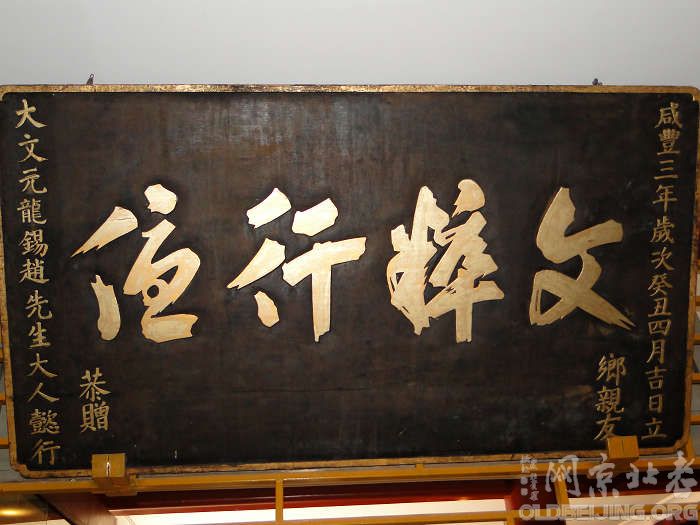 咸豐三年歲次癸丑四月吉日立
鄉親友
文粹行
恭贈
大文元龍錫趙先生大人懿行
老北京网
OLDBEIJING.ORG